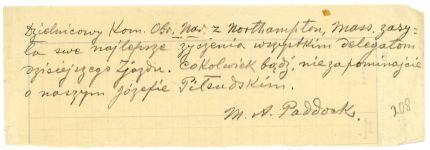 Dzielnicowy Kom. Obr. Nar. z Northampton, Mass. zasy-
ła swe najlepsze życzenia wszystkim delegatom
dzisiejszego Zjazdu. Cokolwiek bądź, nie zapominajcie
o naszym Józefie Piłsudskim.
M. A. Paddock.
208